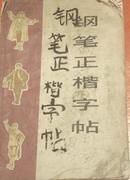 钢笔正楷字帖
钢笔正楷字帖